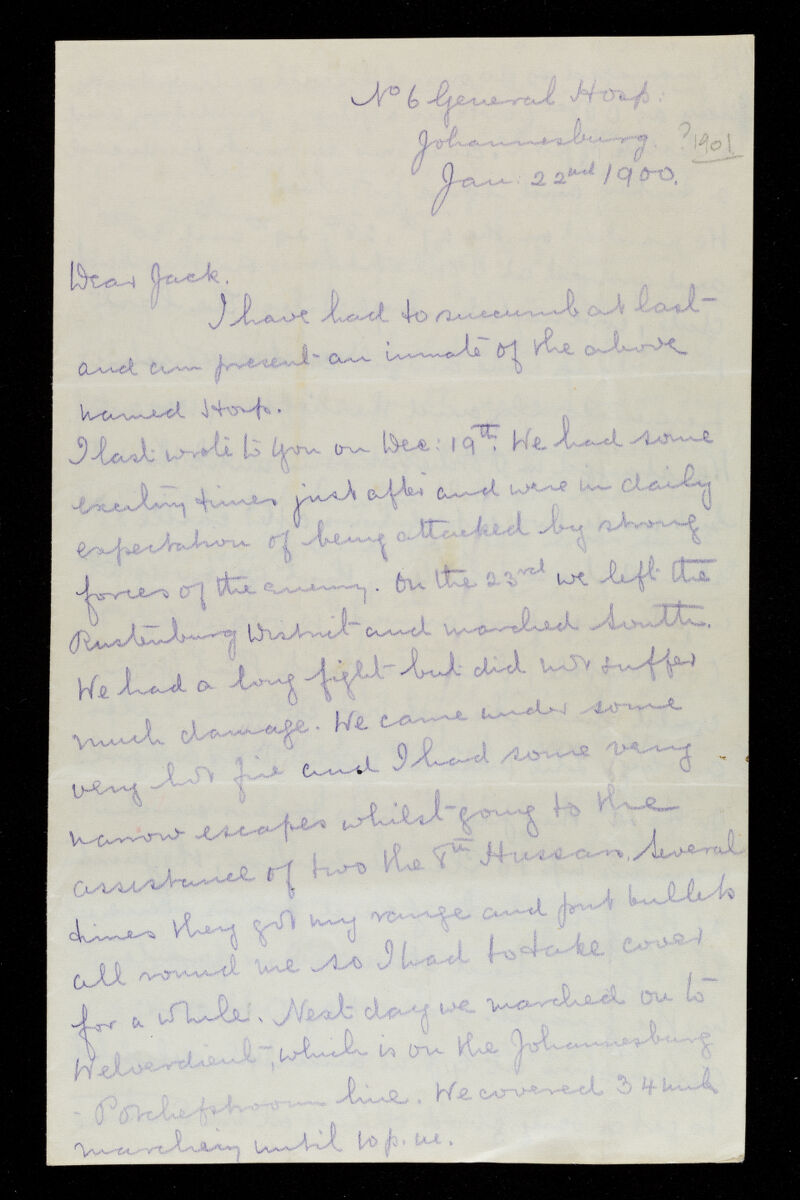 No 6 General Hosp:
Johannesburg. ?1901.
Jan: 22nd 1900.
Dear Jack.
I have had to succumb at last
and am present an inmate of the above
named Hosp.
I last wrote to you on Dec: 19th. We had some
exciting times just after and were in daily
expectation of being attacked by strong
forces of the enemy. On the 23rd we left the
Rustenburg District and marched South.
We had a long fight but did not suffer
much damage. We came under some
very hot fire and I had some very
narrow escapes whilst going to the
assistance of two the 8th Hussars. Several
times they got my range and put bullets
all round me so I had to take cover
for a while. Next day we marched on to
Welverdient, which is on the Johannesburg
- Potchefstroom line. We covered 34 miles
marching until 10 p.m.